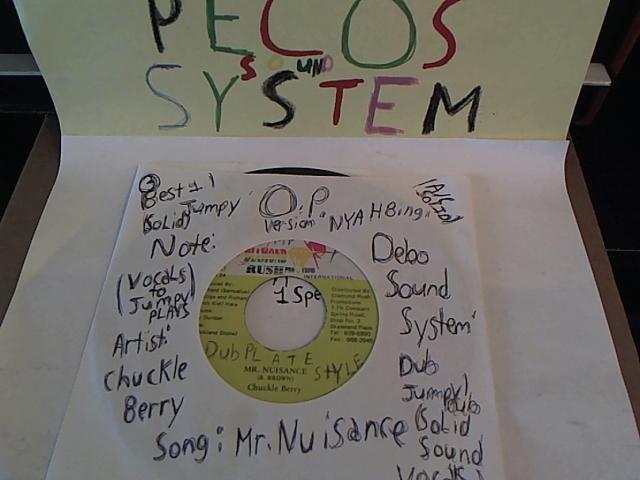 PECOS
SOUND
SYSTEM
Best 1)
(Solid) Jumpy
O.P
Version: "NYAHBing"
Note:
(Vocals)
to
Jumpy
PLAYS
Artist:
Chuckle
Berry
Debo
Sound
System
Dub
Jumpy)
Dub
(Solid
Sound
Vocals)
RUSH
INTERNATIONAL
1 Spe
Distributed By:
Diamond Rush
Promotions
Spring Road,
Shop No. 3
DubPLATE
STYLE
MR. NUISANCE
(B. BROWN)
Chuckle Berry
Song: Mr. Nuisance